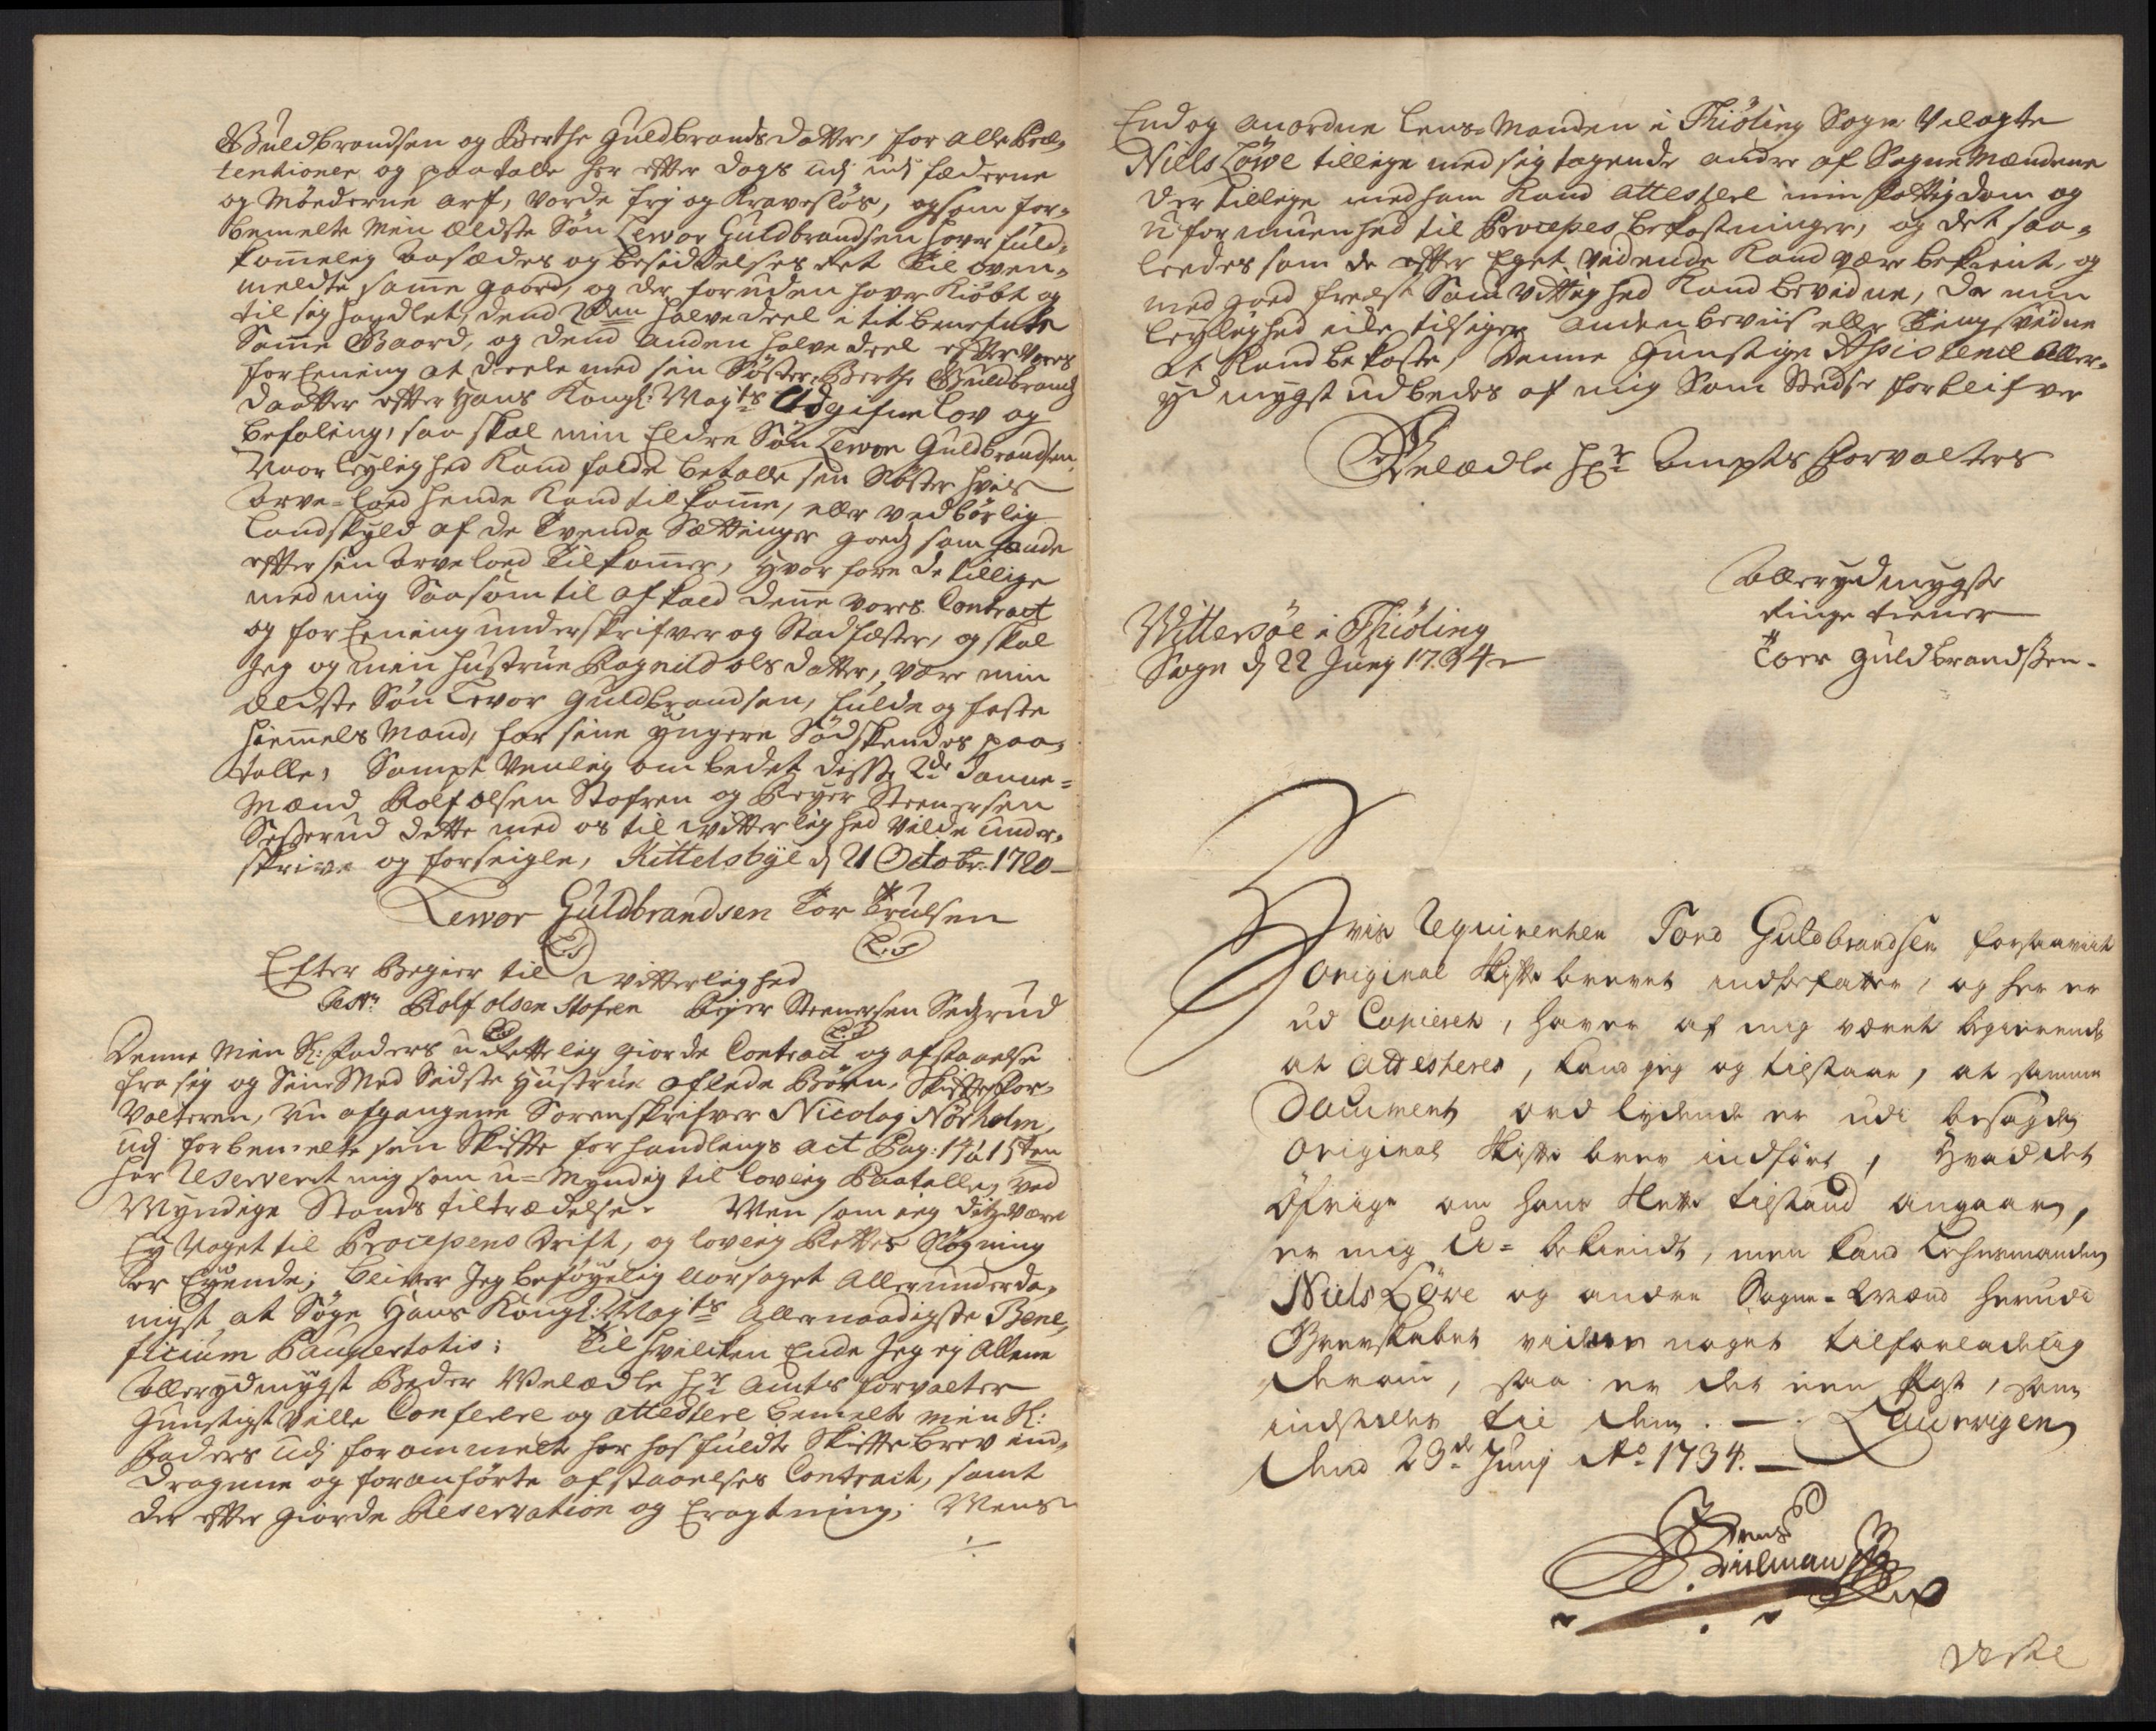 Guldbrandsen og Berthe Guldbrands datter, for alle Præ-
tentioner og paatalle her efter dags udj fæderne
og Møderne arf, vorde frj og Kravesløs, og som for-
bemelte Min Ældste Søn Lewor Guldbrandsen hover fuld-
kommeleg Aasædes og besiddelses ret til oven-
meldte samme gaard, og der foruden haver Kiøbt og
til sig handlet dend halve deel i
Samme Gaard, og dend anden halve deel efter Vores
forEening at deele med sin Søster Berthe Guldbrands
daatter efter Hans Kongl: Majts Udgifne lov og
befaling, saa skal min Eldre Søn Lewor Guldbrandsen,
Naar leylighed Kand falde betalle sin Søster hvis
Arve-lod hende Kand tilkomme, eller vedbørlig
Landskyld af de tvende Settinger goeds som hende
efter sin Arvelod tilkommer, hvor fore de tillige
med mig Saasom til afkald denne vores Contract
og forEening underskrifver og Stadfæster, og skal
Jeg og min Hustrue Ragnild olsdatter, være min
Ældste Søn Levor Guldbrandsen, fulde og faste
Hiemmels Mand, for sine yngere Sødskendes paa-
talle, Sampt Venlig ombedet disse 2de Danne-
Mænd Rolf olsen Stofren og Reyer Steenersen
Seserud dette med os til witterlighed vilde under-
skrive og forseigle, Kittelsbye d 21 Octobr: 1720
Lewor Guldbrandsen Tor Trulsen
L.S L.S
Efter Begier til witterlighed
Rolf olsen Stofren Reyer Steenersen Sedzrud
L.S L.S
Denne Min Sl: Faders u-Rettelig giorde Contract og afstaaelse
fra sig og Sine Med Sidste Hustrue aflede Børn, Skifte for-
valteren, nu afgangene Sorenskrifver Nicolaj Nørholm,
udj forbemelte sin Skifte forhandlings act Pag: 14 à 15ten
har Reserveret mig som u-Myndig til lovlig Paatalle, ved
Myndige Stands tiltrædelse. Men som jeg dis være
Ey Noget til Processens drift, og lovlig Rettes Søgning
er Eyende; bliver Jeg beføyelig aarsaget Allerunderda-
nigst at Søge Hans Kongl: Majts Allernaadigste Bene-
ficium Paupertatis: Til hvilcken Ende Jeg ej Allene
Allerydmygst Beder Welædle Hr Amts forvalter
Gunstigst ville Conferere og attestere bemelte min Sl:
Faders udj forommelte her hos fuldte Skiftebrev ind-
dragne og foranførte afstaaelses Contract, samt
der efter giorde Reservation og Eragtning; Mens
Endog anordne lens-Manden i Thiøling Sogn Velagte
Niels Løwe tillige med sig tagende andre af Sogne Mændene
der tillige med ham Kand attestere min fattigdom og
uformuenhed til Processes bekostninger, og det saa-
leedes som de efter Eget vidende Kand være bekient, og
med goed frelst Samvittighed Kand bevidne, da min
leylighed eile tilsiger anden beviis eller Tingsvidne
at Kand bekoste, Denne Gunstige Assistence Aller-
ydmygst udbedes af mig Som Stedse forblifver
Welædle Hr Ampts forvalters
Allerydmygste
ringe tiener
Toer Guldbrandssen.
Wittersøe i Thiøling
Sogn d 22 Junj 1734
Hvis Requirenten Tord Guldbrandsen forhaaviit
Original Skifte brevet indbefatter, og her er
ud Copieret, haver af mig været begierendes
at attesteres, kand jeg og tilstaae, at samme
Document ord lydende er udi besagde
Original Skifte brev indført, Hvad det
øfrige om hans slette tilstand angaaer,
er mig U-bekiendt, men kand Lehnsmanden
Niels Løve og andre Sogne-Mænd herudi
Grevskabet vidne noget tilforladelig
derom, saa er det een sag, som
indstilles til dem. — Laurvigen
dend 23de Junj Ao 1734.